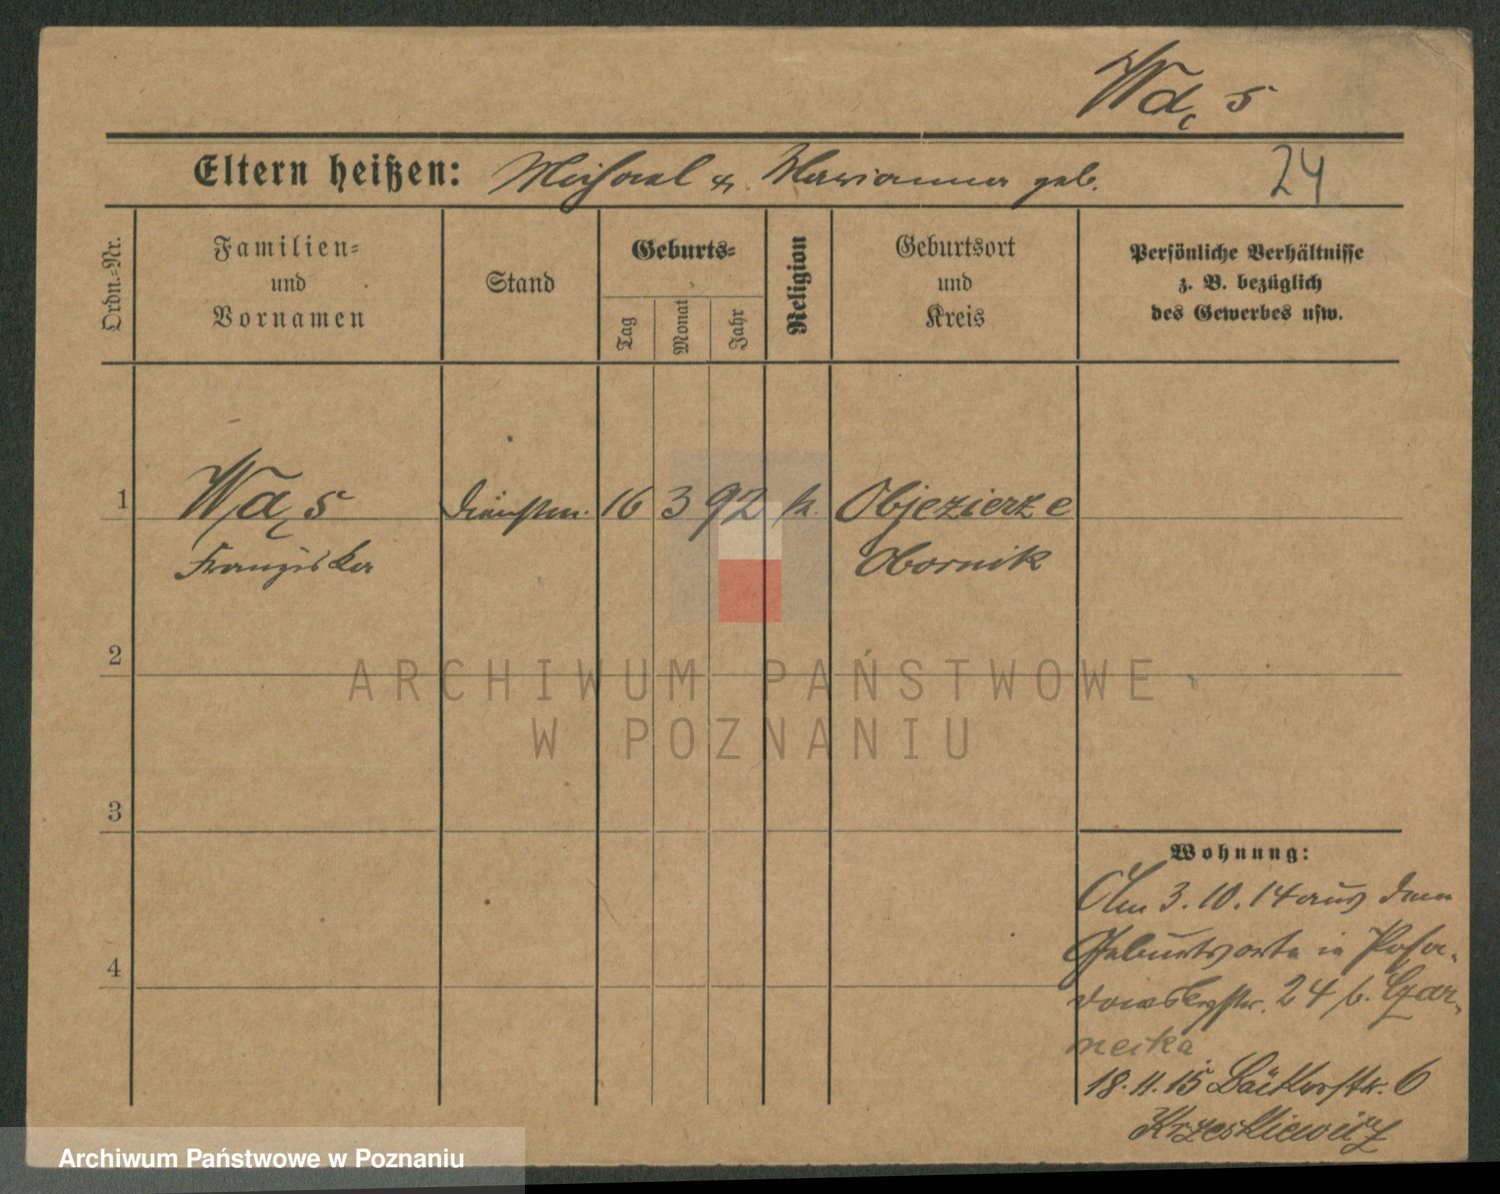 Wąs
Eltern heißen: Michael u. Marianna geb. 24
Ordn.-Nr.
Familien-
und
Vornamen
Stand
Geburts-
Tag
Monat
Jahr
Religion
Geburtsort
und
Kreis
Persönliche Verhältnisse
z. B. bezüglich
des Gewerbes usw.
1 Wąs 16 3 92 k. Objezierze
Franziska Obornik
2
ARCHIWUM PAŃSTWOWE
W POZNANIU
3
Wohnung:
Am 3.10.14 aus dem
Geburtsorte in Posa-
dowskystr. 24 b. Czar-
necka
18.11.15 Bäckerstr. 6
Krzeskiewicz
4
Archiwum Państwowe w Poznaniu